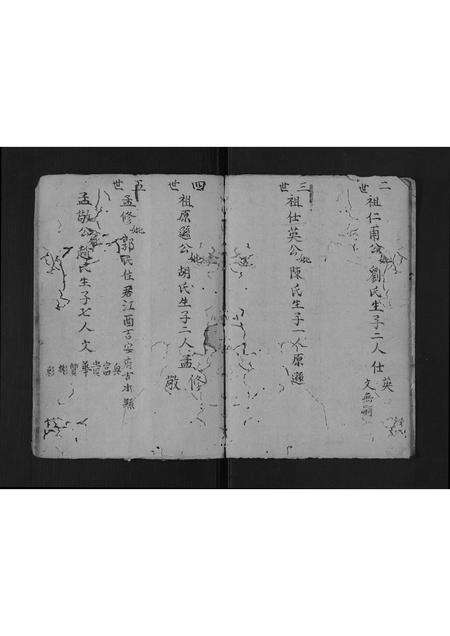 二世
祖仁甫公妣劉氏生子二人仕英
文無嗣
三世
祖仕英公妣陳氏生子一人原遜
四世
祖原遜公妣胡氏生子二人孟修
敬
五世
孟修妣郭氏住居江西吉安府吉水縣
孟敬公妣趙氏生子七人文
富貴華賢彬彩